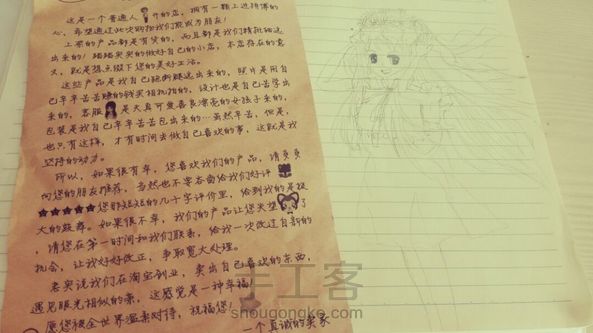 这是一个普通人开的店，拥有一颗上进拼搏的
心，希望通过此次购物我们能成为朋友！
上架的产品都是有货的，而且都是我们精挑细选
出来的！踏踏实实的做好自己的小店，本店存在的意
义，就是想点缀下您的美好生活。
这些产品是我自己跑断腿选出来的，照片是用自
己辛辛苦苦赚的钱买相机拍的，设计也是自己苦学出
来的，客服是天真可爱善良漂亮的女孩子来的，
包装是我自己辛辛苦苦包出来的…虽然辛苦，但是，
也只有这样，才有时间去做自己喜欢的事，这就是我
坚持的动力。
所以，如果很有幸，您喜欢我们的产品，请多多
向您的朋友推荐，当然也不要吝啬给我们好评
★★★★★您那短短的几十字评价里，给到我的是极
大的鼓舞。如果很不幸，我们的产品让您失望了
，请您在第一时间和我们联系，给我一次改过自新的
机会，让我好好改正，争取宽大处理。
老实说我们在淘宝创业，卖出自己喜欢的东西，
遇见眼光相似的亲，这感觉是一种幸福！
愿您被全世界温柔对待，祝福您！
一个真诚的卖家
手工客
shougongke.com